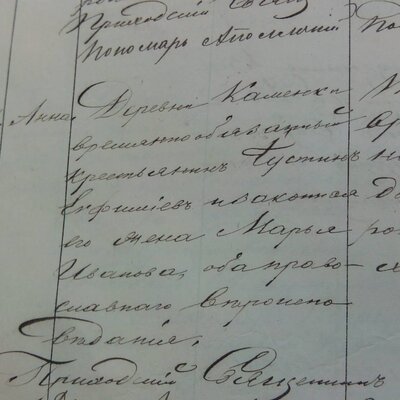 Приходскій Свящ
Пономарь Аполлоній
Анна. Деревни Каменки
временнообязанный
крестьянинъ Густинъ
Евфиміевъ и законная
его жена Марья
Иванова, оба право-
славнаго вѣроиспо
вѣданія.
Приходскій Священник